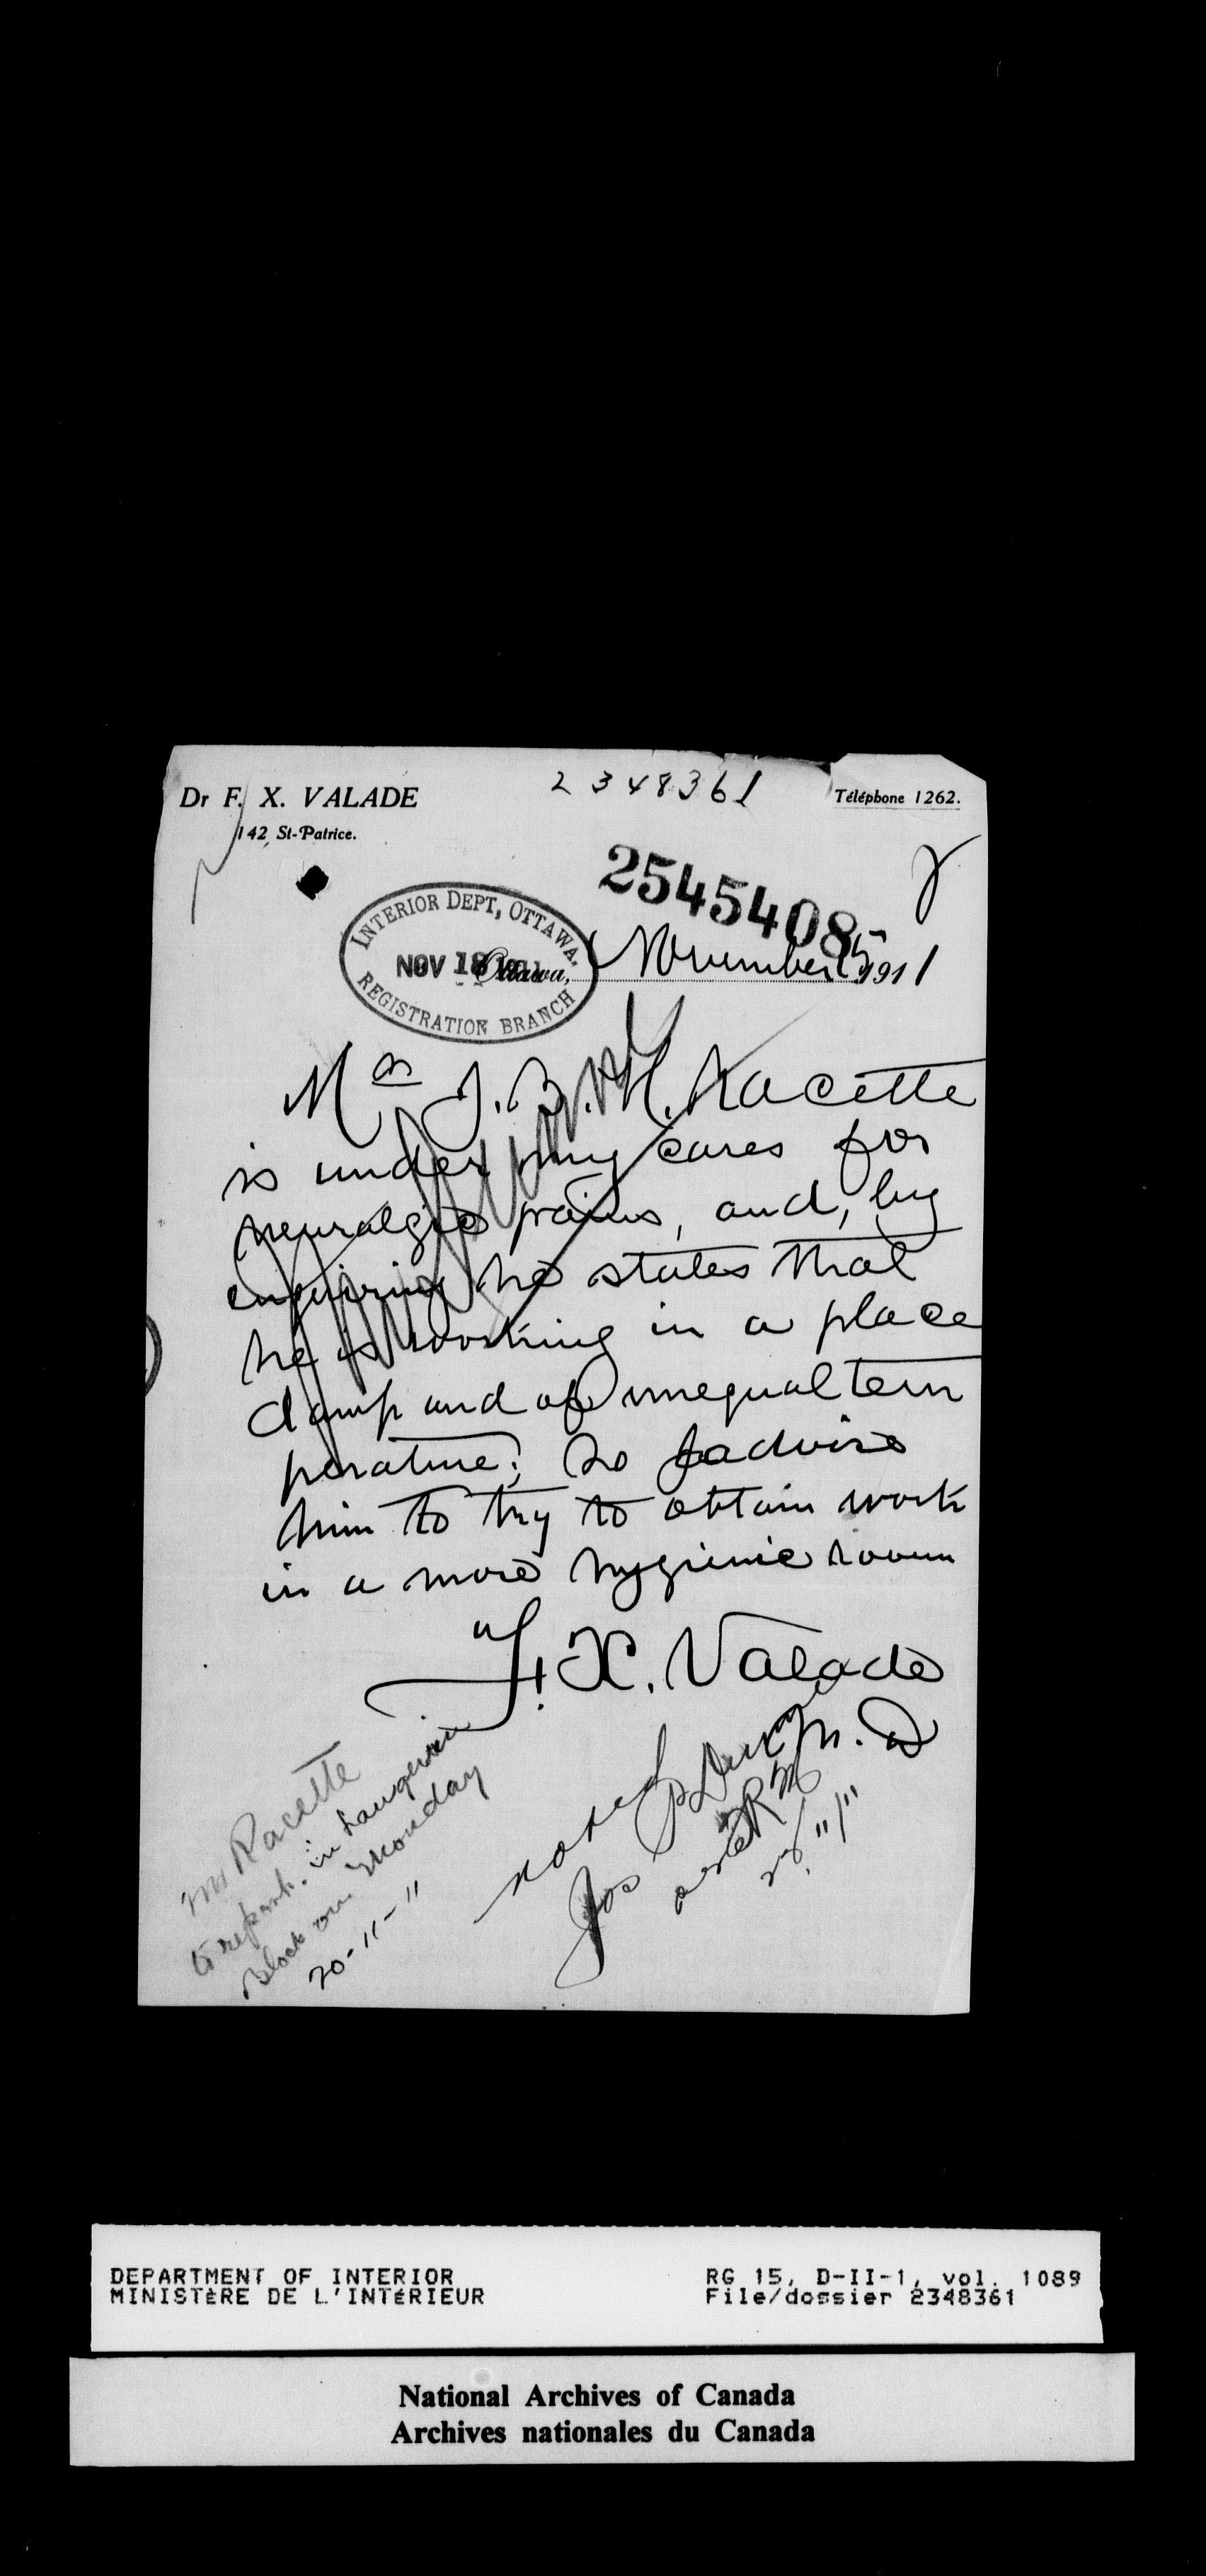 Dr F. X. VALADE
142, St-Patrice.
2348361
Téléphone 1262.
2545408
INTERIOR DEPT, OTTAWA.
NOV 18 1911
REGISTRATION BRANCH
Ottawa, November 15 1911
Mr J. B. H. Racette
is under my cares for
neuralgic pains, and, by
enquiring he states that
he is working in a place
damp and of unequal tem
perature; so I advise
him to try to obtain work
in a more hygienic room
F. X. Valade
M. D
Mr Racette
to report in Langevin
Block on Monday
20-11-11
noted
Jos
DEPARTMENT OF INTERIOR
MINISTÈRE DE L'INTÉRIEUR
RG 15, D-II-1, vol. 1089
File/dossier 2348361
National Archives of Canada
Archives nationales du Canada